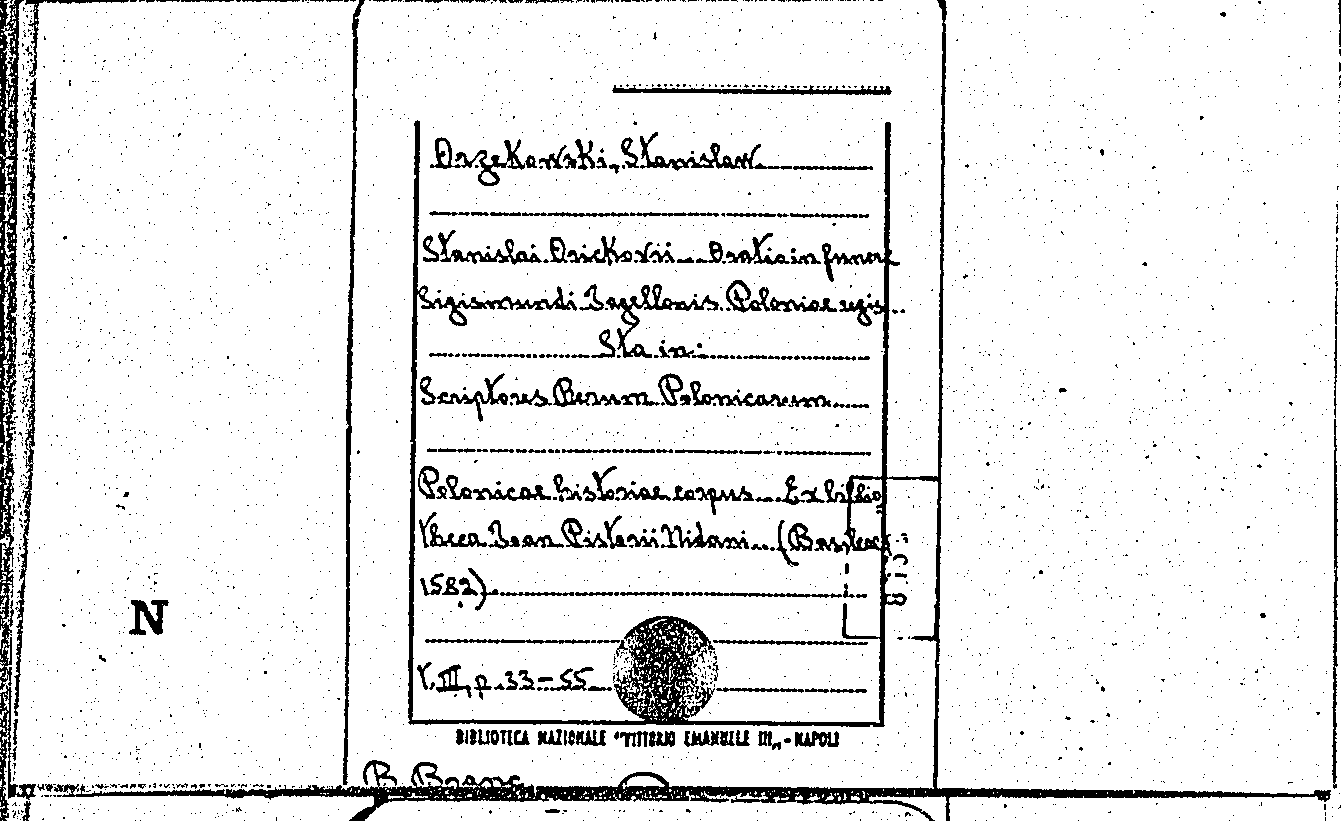 Orzekowski, Stanislaw
Stanislai Orickovii... Oratio in funere
Sigismundi Jagellonis Poloniae regis...
Sta in:
Scriptores Rerum Polonicarum
Polonicae historiae corpus... Ex biblio
theca Joan Pistorii Nidani... (Basileae,
1582).
N
V. III, p. 33-55
BIBLIOTECA NAZIONALE "VITTORIO EMANUELE III„ - NAPOLI
B. Branc.